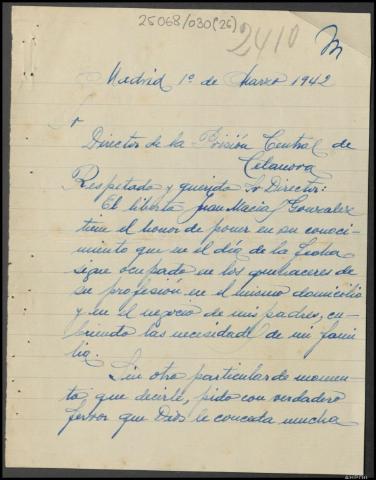 25068/030(26)
2410
Madrid 1º de Marzo 1942
Sr
Director de la Prisión Central de
Celanova
Respetado y querido Sr Director:
El liberto Juan Macia Gonzalez
tiene el honor de poner en su conoci-
miento que en el día de la fecha
sigue ocupado en los quehaceres de
su profesión en el mismo domicilio
y en el negocio de mis padres, cu-
briendo las necesidad de mi fami
lia.
Sin otro particular de momen-
to que decirle, pido con verdadero
fervor que Dios le conceda mucha